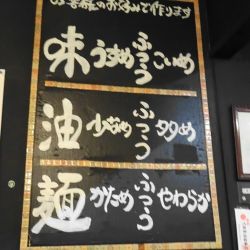 お客様のお好みで作ります
味 うすめ ふつう こいめ
油 少なめ ふつう 多め
麺 かため ふつう やわらか